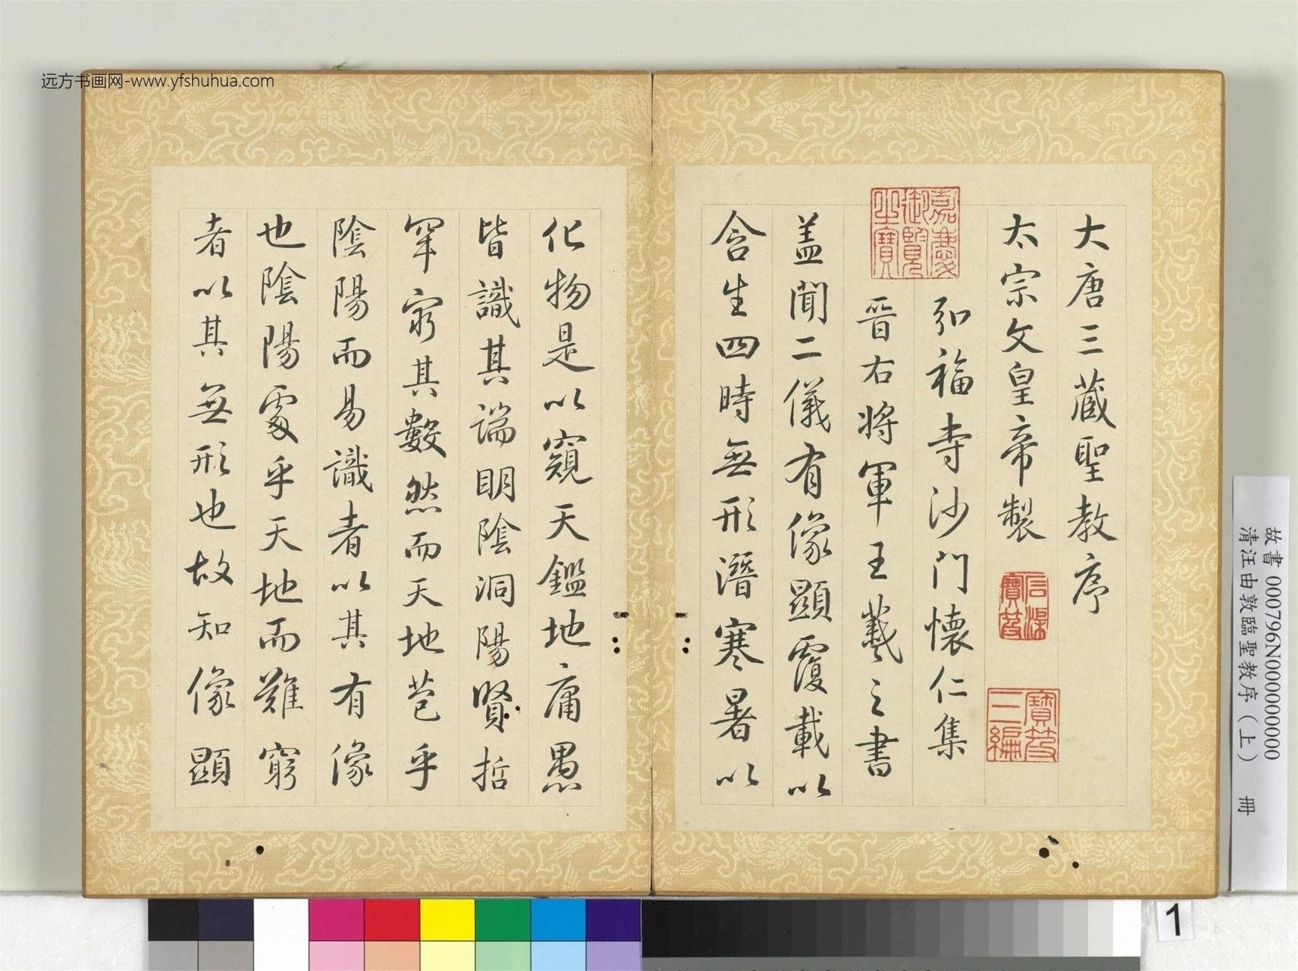 远方书画网-www.yfshuhua.com
大唐三藏聖教序
太宗文皇帝製
弘福寺沙門懷仁集
晉右將軍王羲之書
蓋聞二儀有像顯覆載以
含生四時無形潛寒暑以
化物是以窺天鑑地庸愚
皆識其端明陰洞陽賢哲
罕窮其數然而天地苞乎
陰陽而易識者以其有像
也陰陽處乎天地而難窮
者以其無形也故知像顯
嘉慶御覽之寶
寶笈三編
故書 000796N000000000
清汪由敦臨聖教序（上） 冊
1